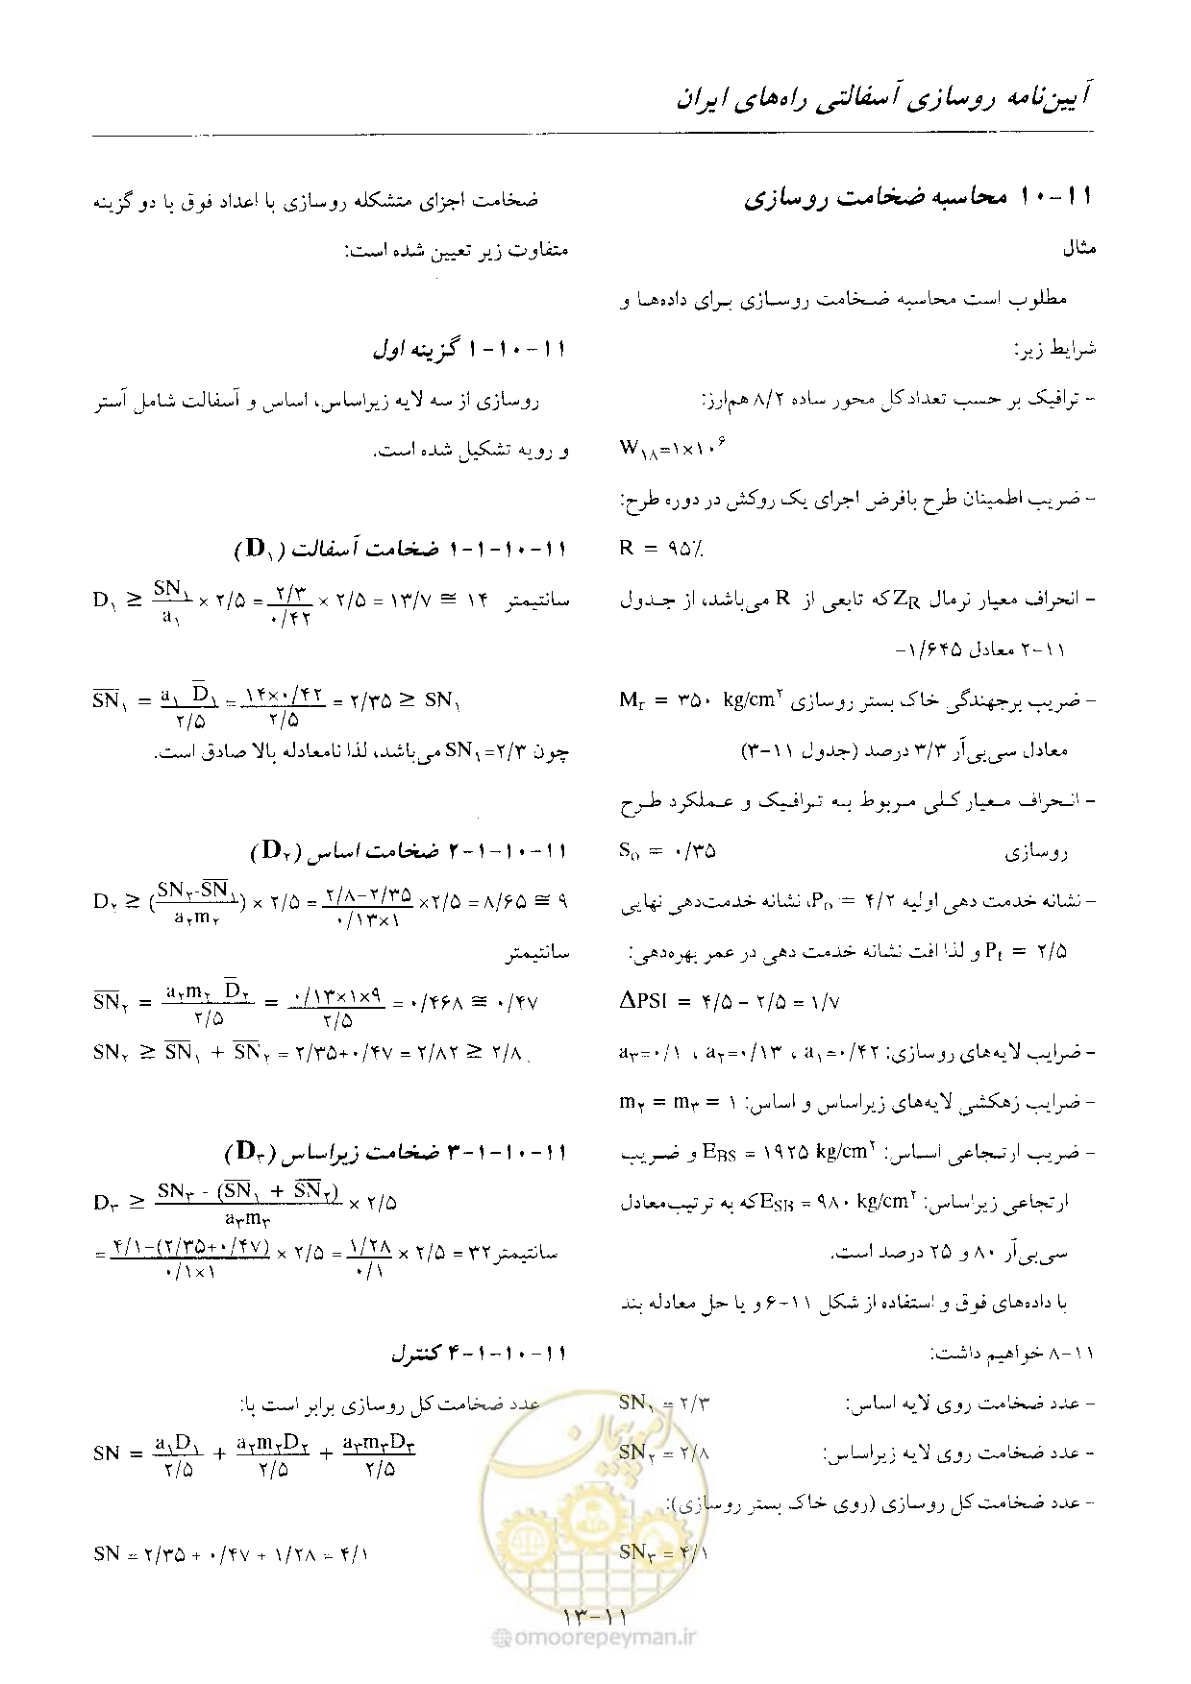 آیین‌نامه روسازی آسفالتی راه‌های ایران
۱۱-۱۰ محاسبه ضخامت روسازی
مثال
مطلوب است محاسبه ضخامت روسازی برای داده‌ها و
شرایط زیر:
- ترافیک بر حسب تعداد کل محور ساده ۸/۲ هم‌ارز:
W۱۸=۱×۱۰⁶
- ضریب اطمینان طرح با فرض اجرای یک روکش در دوره طرح:
R = ۹۵٪
- انحراف معیار نرمال ZR که تابعی از R می‌باشد، از جدول
۱۱-۲ معادل ۱/۶۴۵-
- ضریب برجهندگی خاک بستر روسازی Mr = ۳۵۰ kg/cm²
معادل سی‌بی‌آر ۳/۳ درصد (جدول ۱۱-۳)
- انحراف معیار کلی مربوط به ترافیک و عملکرد طرح
روسازی S₀ = ۰/۳۵
- نشانه خدمت دهی اولیه P₀ = ۴/۲، نشانه خدمت‌دهی نهایی
Pt = ۲/۵ و لذا افت نشانه خدمت دهی در عمر بهره‌دهی:
ΔPSI = ۴/۵ – ۲/۵ = ۱/۷
- ضرایب لایه‌های روسازی: a۱=۰/۴۲ ، a۲=۰/۱۳ ، a۳=۰/۱
- ضرایب زهکشی لایه‌های زیراساس و اساس: m۲ = m۳ = ۱
- ضریب ارتجاعی اساس: EBS = ۱۹۲۵ kg/cm² و ضریب
ارتجاعی زیراساس: ESB = ۹۸۰ kg/cm² که به ترتیب معادل
سی‌بی‌آر ۸۰ و ۲۵ درصد است.
با داده‌های فوق و استفاده از شکل ۱۱-۶ و یا حل معادله بند
۱۱-۸ خواهیم داشت:
- عدد ضخامت روی لایه اساس: SN۱ = ۲/۳
- عدد ضخامت روی لایه زیراساس: SN۲ = ۲/۸
- عدد ضخامت کل روسازی (روی خاک بستر روسازی):
SN۳ = ۴/۱
ضخامت اجزای متشکله روسازی با اعداد فوق با دو گزینه
متفاوت زیر تعیین شده است:
۱۱-۱۰-۱ گزینه اول
روسازی از سه لایه زیراساس، اساس و آسفالت شامل آستر
و رویه تشکیل شده است.
۱۱-۱۰-۱-۱ ضخامت آسفالت (D۱)
D۱ ≥ SN۱/a۱ × ۲/۵ = ۲/۳ / ۰/۴۲ × ۲/۵ = ۱۳/۷ ≅ ۱۴ سانتیمتر
S̅N̅۱ = a۱ D̅۱ / ۲/۵ = ۱۴×۰/۴۲ / ۲/۵ = ۲/۳۵ ≥ SN۱
چون SN۱=۲/۳ می‌باشد، لذا نامعادله بالا صادق است.
۱۱-۱۰-۱-۲ ضخامت اساس (D۲)
D۲ ≥ (SN۲-S̅N̅۱ / a۲m۲) × ۲/۵ = ۲/۸–۲/۳۵ / ۰/۱۳×۱ ×۲/۵ = ۸/۶۵ ≅ ۹
سانتیمتر
S̅N̅۲ = a۲m۲ D̅۲ / ۲/۵ = ۰/۱۳×۱×۹ / ۲/۵ = ۰/۴۶۸ ≅ ۰/۴۷
SN۲ ≥ S̅N̅۱ + S̅N̅۲ = ۲/۳۵+۰/۴۷ = ۲/۸۲ ≥ ۲/۸
۱۱-۱۰-۱-۳ ضخامت زیراساس (D۳)
D۳ ≥ SN۳ - (S̅N̅۱ + S̅N̅۲) / a۳m۳ × ۲/۵
= ۴/۱–(۲/۳۵+۰/۴۷) / ۰/۱×۱ × ۲/۵ = ۱/۲۸ / ۰/۱ × ۲/۵ = ۳۲ سانتیمتر
۱۱-۱۰-۱-۴ کنترل
عدد ضخامت کل روسازی برابر است با:
SN = a۱D۱ / ۲/۵ + a۲m۲D۲ / ۲/۵ + a۳m۳D۳ / ۲/۵
SN = ۲/۳۵ + ۰/۴۷ + ۱/۲۸ = ۴/۱
امور پیمان
۱۱-۱۳
@omoorepeyman.ir